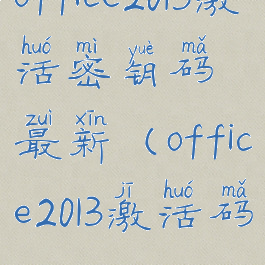 office2013激
huó mì yuè mǎ
活密钥码
zuì xīn
最新(offic
jī huó mǎ
e2013激活码